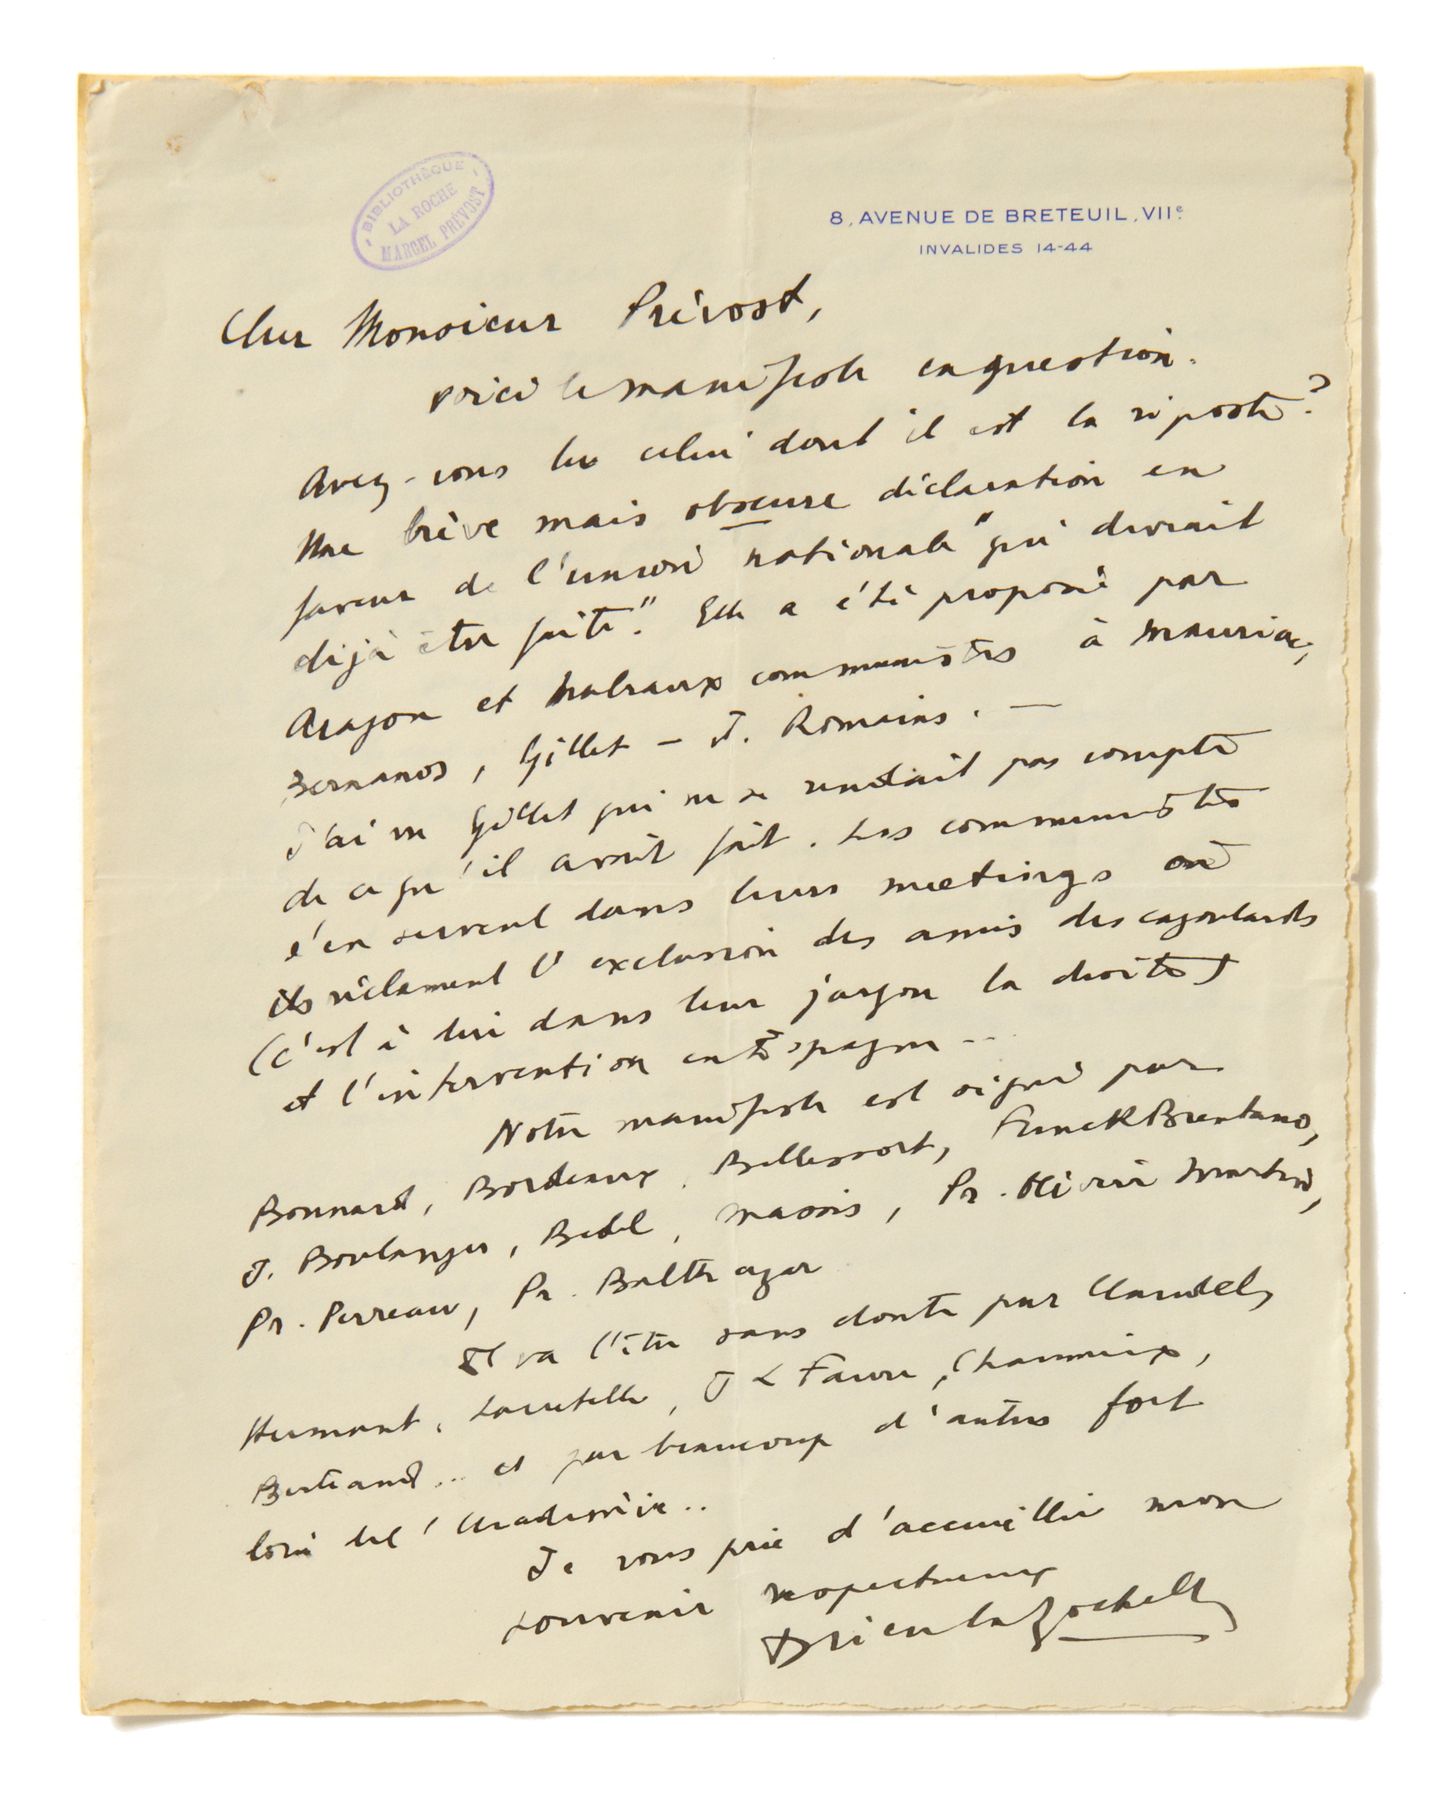 BIBLIOTHÈQUE
LA ROCHE
MARCEL PRÉVOST
8, AVENUE DE BRETEUIL, VIIe
INVALIDES 14-44
Cher Monsieur Prévost,
voici le manifeste en question.
Avez-vous lu celui dont il est la riposte?
Une brève mais obscure déclaration en
faveur de l'union nationale "qui devrait
déjà être faite". Elle a été proposée par
Aragon et Malraux communistes à Mauriac,
Bernanos, Gillet – J. Romains. —
J'ai vu Gillet qui ne se rendait pas compte
de ce qu'il avait fait. Les communistes
s'en servent dans leurs meetings où
ils réclament l'exclusion des amis des cagoulards
(c'est à dire dans leur jargon la droite)
et l'intervention en Espagne...
Notre manifeste est signé par
Bonnard, Bordeaux, Bellessort, Funck Brentano,
J. Boulanger, Bedel, Massis, Pr. Olivier Martin,
Pr. Perreau, Pr. Balthazar
Il va l'être sans doute par Claudel,
Hermant, Lacretelle, J L Faure, Chaumeix,
Bertrand... et par beaucoup d'autres fort
loin de l'Académie..
Je vous prie d'accueillir mon
souvenir respectueux
Drieu la Rochelle